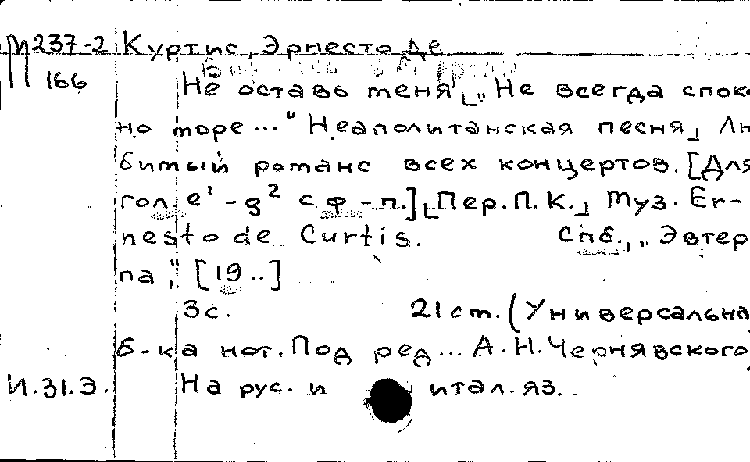 М237-2 Куртис, Эрнесто де
П 166
Не оставь меня! „Не всегда споко
но море..." Неаполитанская песня Лю
бимый романс всех концертов. [Для
гол. e¹ - g² с ф-п.] Пер. П. К. Муз. Er-
nesto de Curtis. Спб., „Эвтер
па", [19..]
3с. 21 cm. (Универсальна
б-ка нот. Под ред... А. Н. Чернявского
И.31.Э. На рус. и итал. яз.